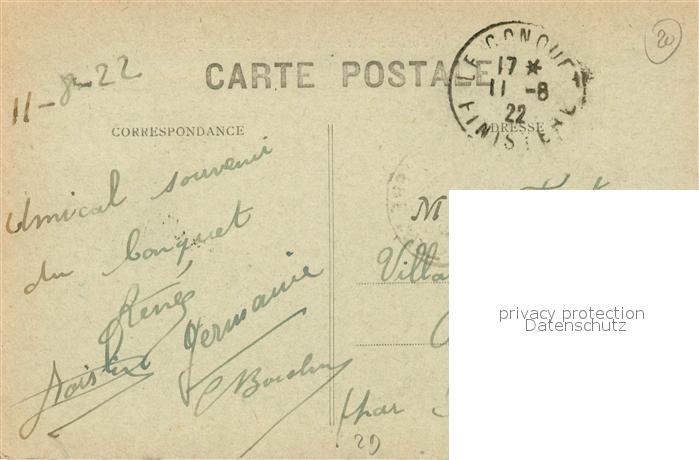 20
11-8-22
CARTE POSTALE
LE CONQUET
17 *
11 -8
22
FINISTERE
CORRESPONDANCE
ADRESSE
Amical souvenir
du Conquet
René
Germaine
M
Villa
par
29
privacy protection
Datenschutz